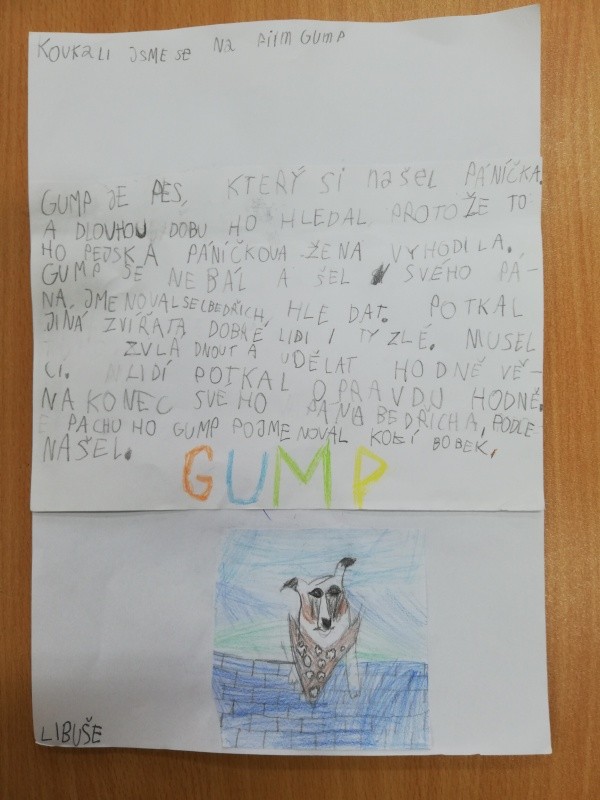 KOUKALI JSME SE NA FILM GUMP
GUMP JE PES, KTERÝ SI NAŠEL PÁNÍČKA.
A DLOUHOU DOBU HO HLEDAL PROTOŽE TO
HO PEJSKA PÁNÍČKOVA ŽENA VYHODILA.
GUMP SE NEBÁL A ŠEL SVÉHO PÁ-
NA, JMENOVAL SE BEDŘICH, HLEDAT. POTKAL
JINÁ ZVÍŘATA DOBRÉ LIDI I TY ZLÉ. MUSEL
ZVLÁDNOUT A UDĚLAT HODNĚ VĚ-
CÍ. LIDÍ POTKAL OPRAVDU HODNĚ.
NAKONEC SVÉHO PÁNA BEDŘICHA, PODLE
PACHU HO GUMP POJMENOVAL KOZÍ BOBEK,
NAŠEL.
GUMP
LIBUŠE